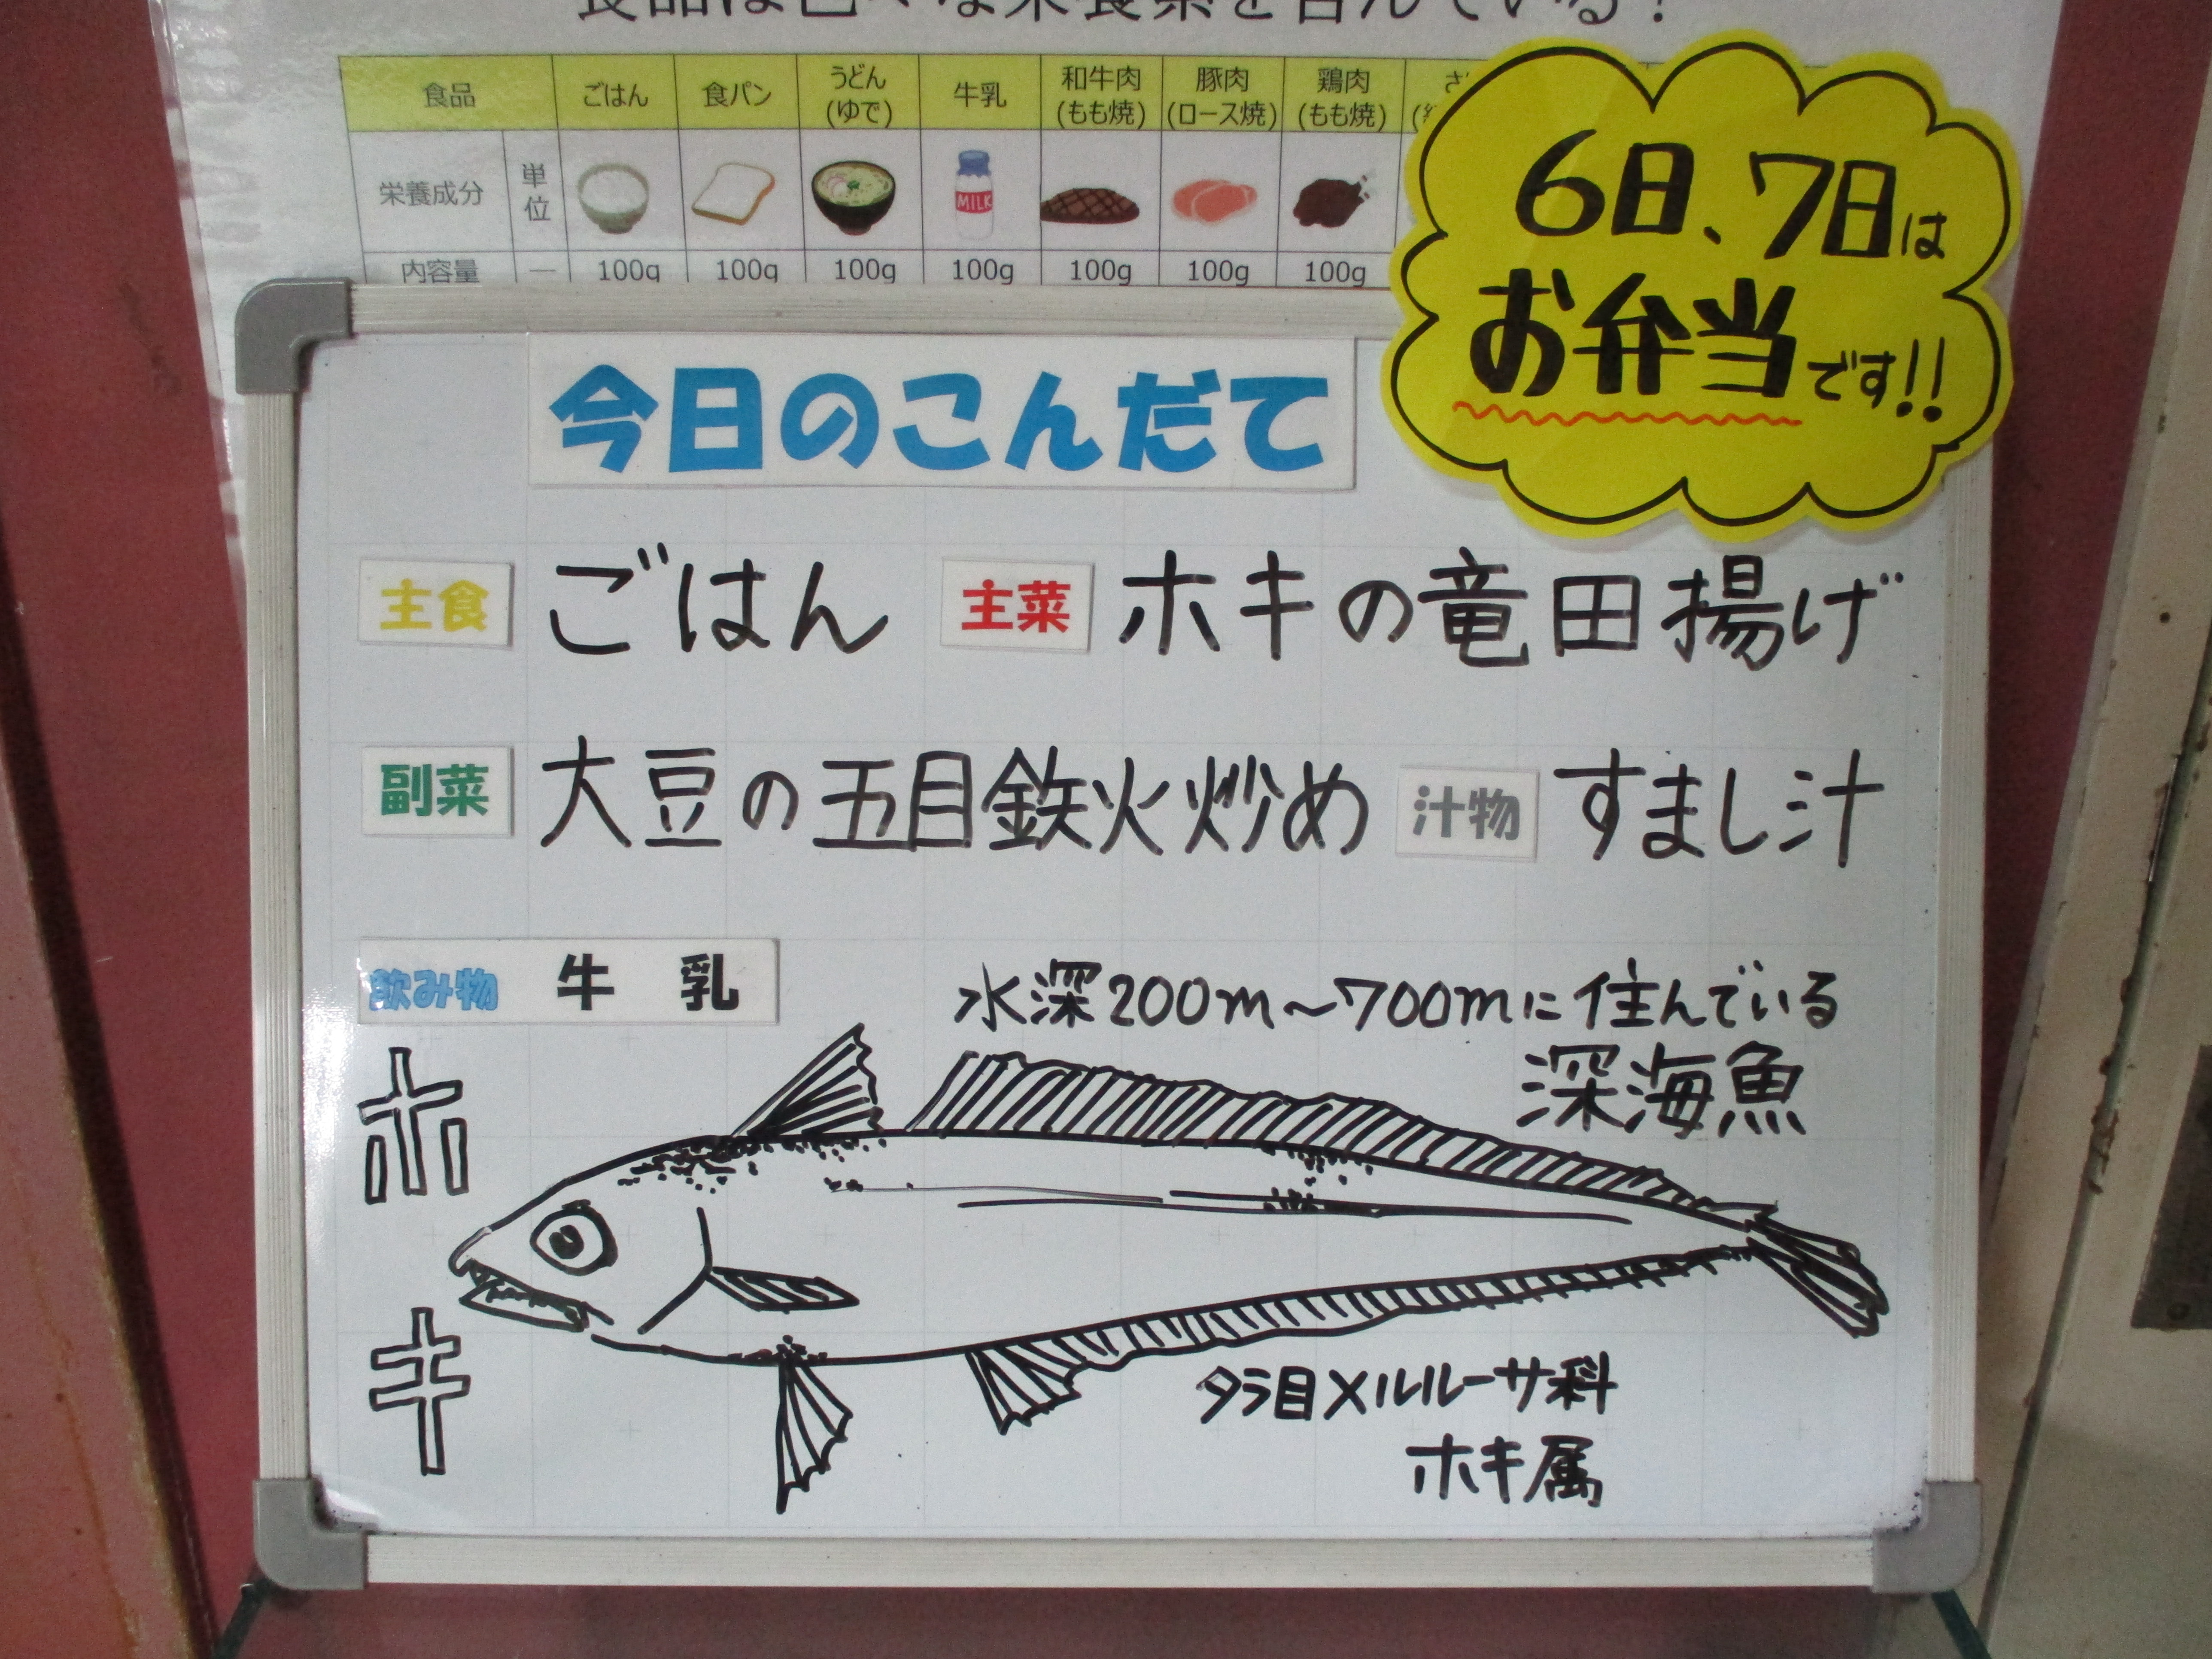 食品は色々な栄養素を含んでいる！
食品 ごはん 食パン うどん(ゆで) 牛乳 和牛肉(もも焼) 豚肉(ロース焼) 鶏肉(もも焼)
栄養成分 単位 MILK
内容量 — 100g 100g 100g 100g 100g 100g 100g
6日、7日は
お弁当です!!
今日のこんだて
主食 ごはん 主菜 ホキの竜田揚げ
副菜 大豆の五目鉄火炒め 汁物 すまし汁
飲み物 牛乳
水深200m～700mに住んでいる
深海魚
ホキ
タラ目メルルーサ科
ホキ属